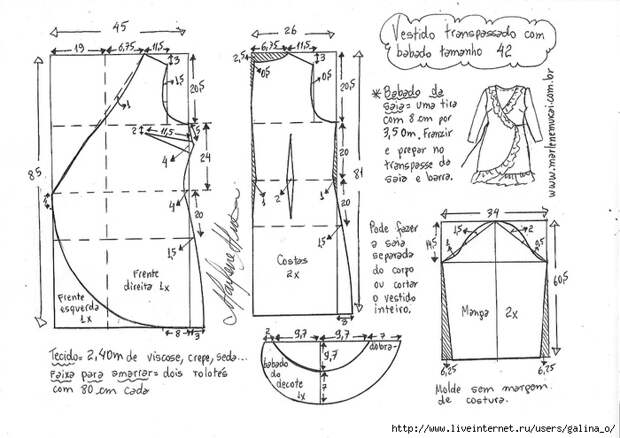 Vestido transpassado com
babado tamanho 42
45
19
6,75
11,5
3
1,5
20,5
1
85
2
11,5
1,5
4
24
4
20
1
1,5
Frente
direita 1x
Frente
esquerda
1x
8
3
26
6,75
11,5
2,5
3
0,5
0,5
20,5
20
81
1
2
1
20
1,5
Costas
2x
3
* Babado da
saia = uma tira
com 8 cm por
3,50m. Franzir
e pregar no
transpasse da
saia e barra.
www.marlenemukai.com.br
Pode fazer
a saia
separada
do corpo
ou cortar
o vestido
inteiro.
34
14,5
1,5
2
1
0,5
60,5
Manga
2x
6,25
6,25
Molde sem margem
de costura.
2
9,7
9,7
7
dobra
9,7
babado
do
decote
1x
7
Tecido = 2,40m de viscose, crepe, seda...
Faixa para amarrar = dois rolotês
com 80 cm cada
http://www.liveinternet.ru/users/galina_o/